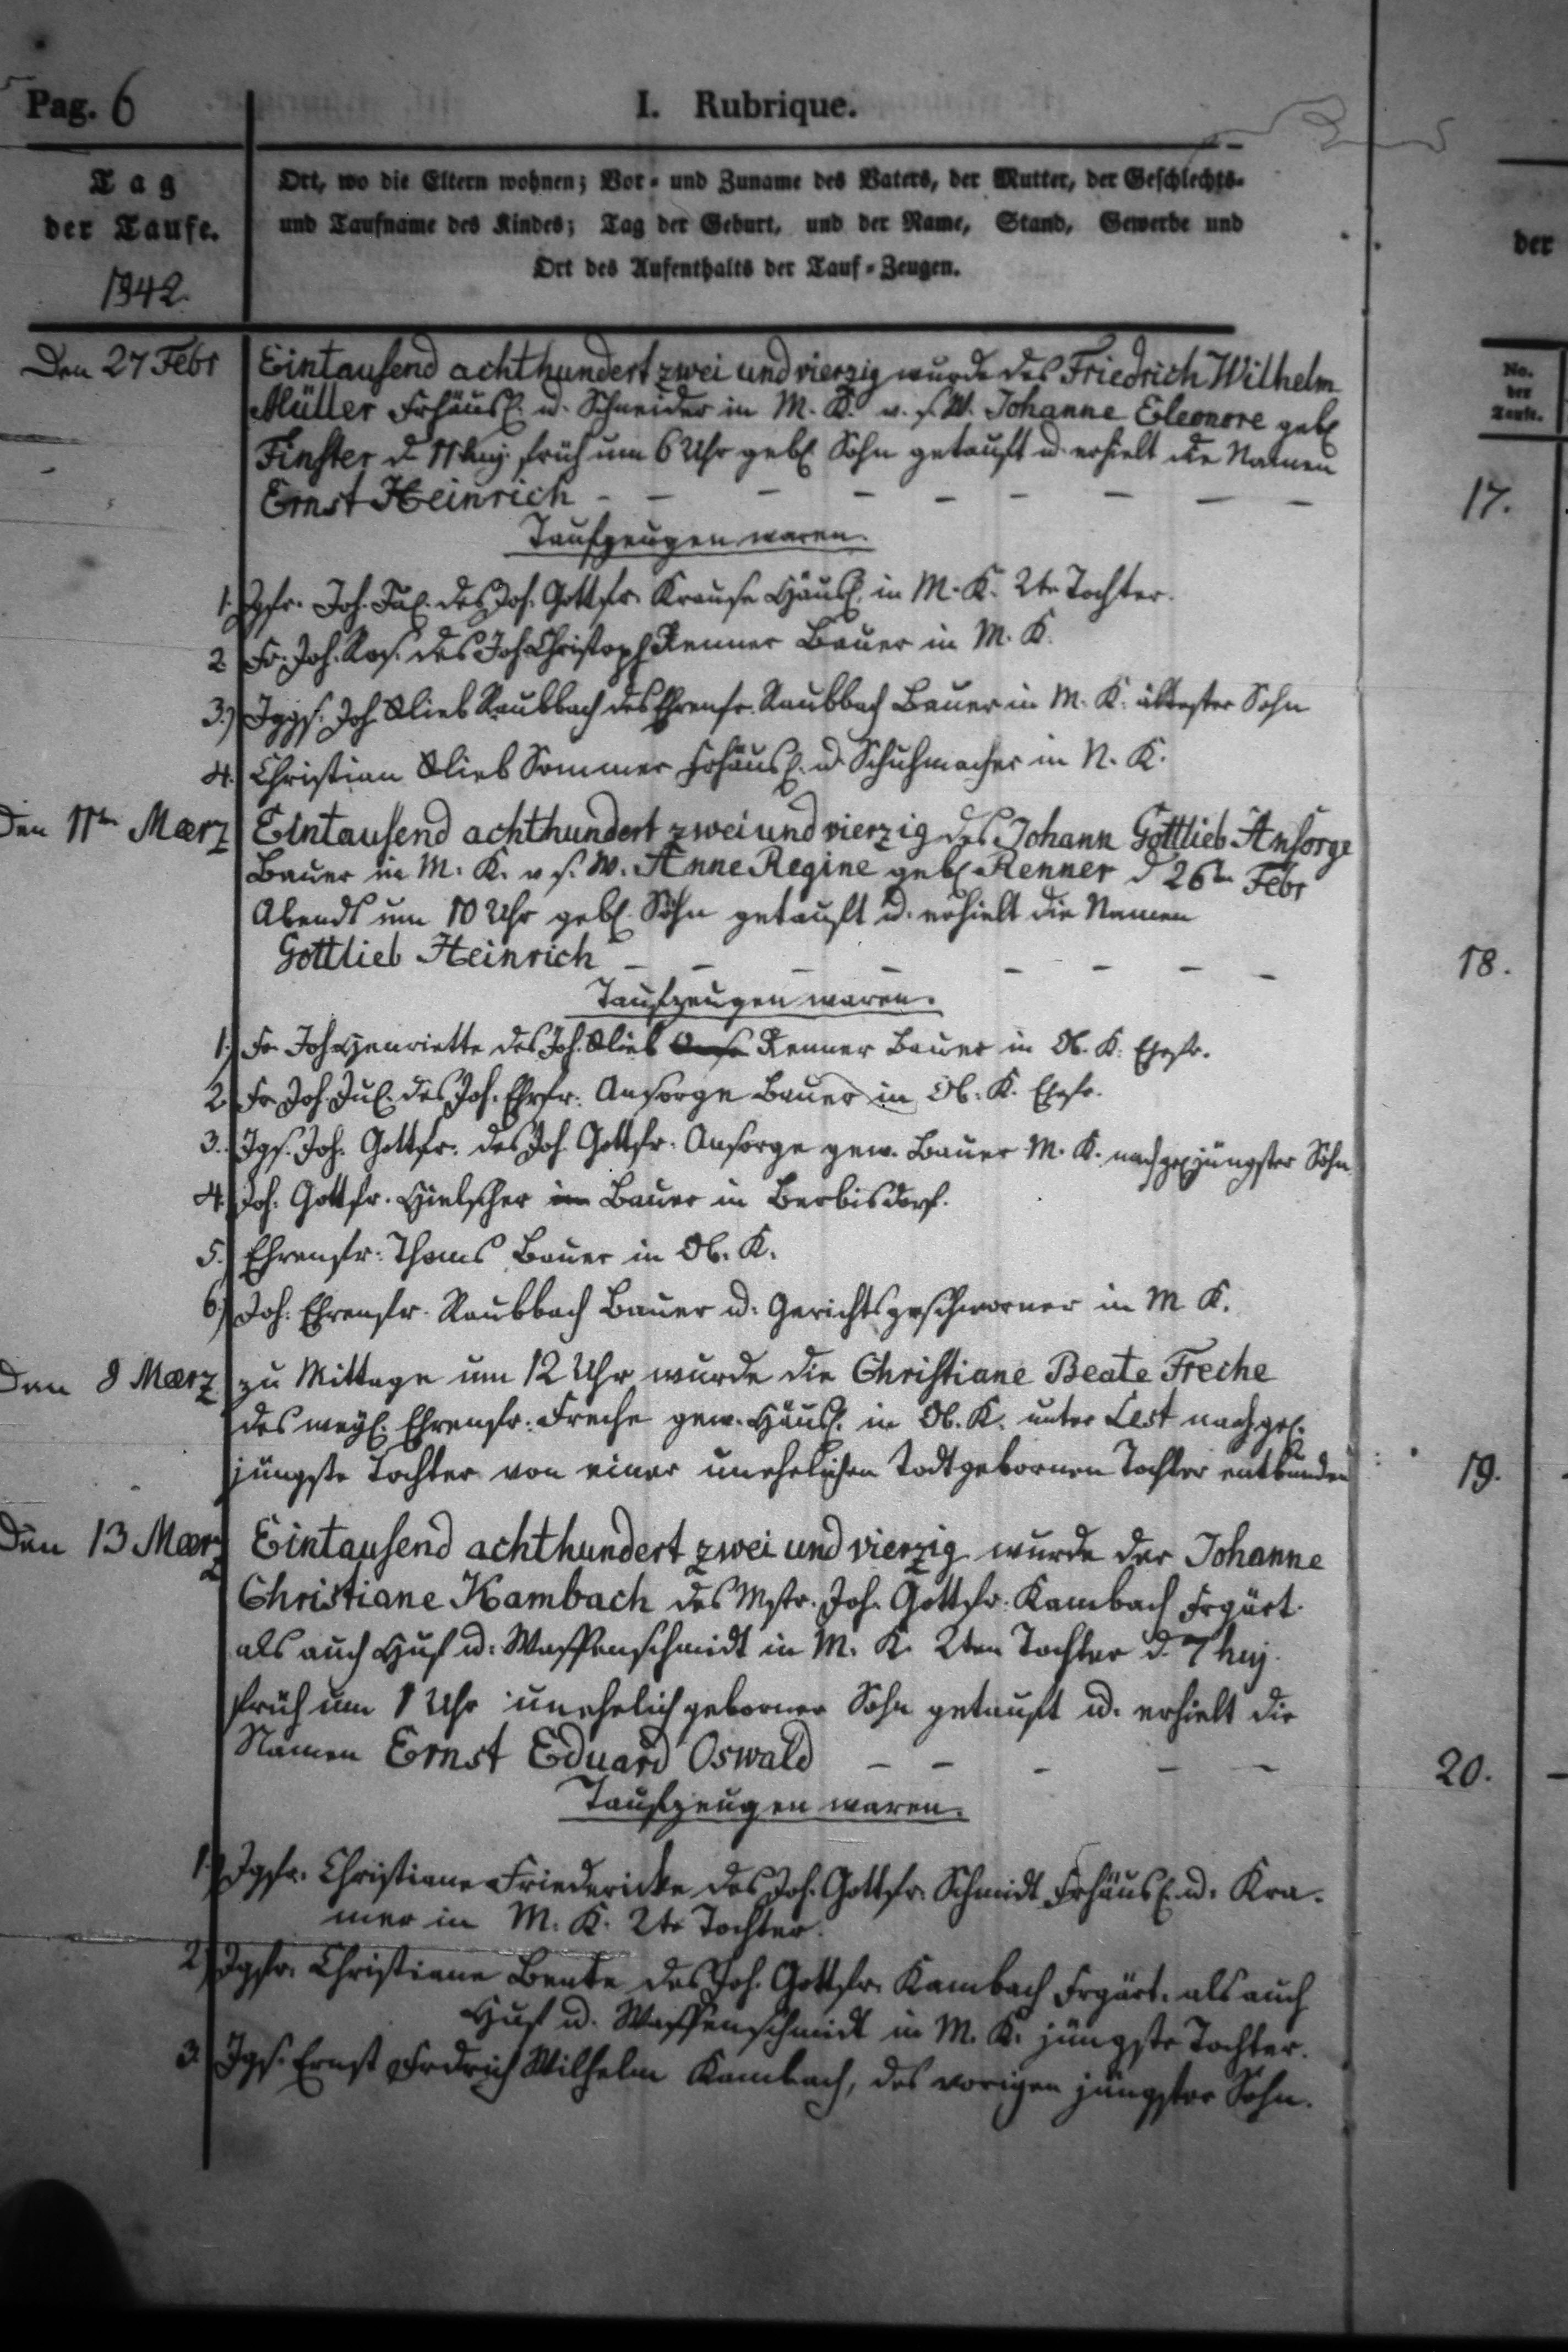 Pag. 6
I. Rubrique.
Tag
der Taufe.
1842.
Ort, wo die Eltern wohnen; Vor- und Zuname des Vaters, der Mutter, der Geschlechts-
und Taufname des Kindes; Tag der Geburt, und der Name, Stand, Gewerbe und
Ort des Aufenthalts der Tauf-Zeugen.
der
No.
der
Taufe.
Den 27 Febr Eintausend achthundert zwei und vierzig wurde des Friedrich Wilhelm
Müller Frhäusl. u. Schneider in M. K. u. s. W. Johanne Eleonore geb.
Finster d. 11 huj. früh um 6 Uhr geb. Sohn getauft u. erhielt die Namen
Ernst Heinrich - - - - - - - - - 17.
Taufzeugen waren.
1. Jgfr. Joh. Jul. des Joh. Gottfr. Krause Häusl. in M. K. 2te Tochter.
2. Fr. Joh. Ros. des Joh Christoph Renner Bauer in M. K.
3.) Jggs. Joh Glieb Raubbach des Ehrenfr. Raubbach Bauer in M. K. ältester Sohn
4. Christian Glieb Sommer Frhäusl. u. Schuhmacher in N. K.
Den 11ten Maerz Eintausend achthundert zwei und vierzig des Johann Gottlieb Ansorge
Bauer in M. K. u s. W. Anne Regine geb. Renner d 26ten Febr
Abends um 10 Uhr geb. Sohn getauft u. erhielt die Namen
Gottlieb Heinrich - - - - - - - - 18.
Taufzeugen waren.
1.) Fr. Joh Henriette des Joh. Glieb Renner Bauer in Ob. K. Ehefr.
2. Fr Joh. Jul. des Joh. Ehrfr. Ansorge Bauer in Ob. K. Ehefr.
3. Jgs. Joh. Gottfr. des Joh Gottfr. Ansorge gew. Bauer M. K. nachgel. jüngster Sohn
4. Joh. Gottfr. Hielscher im Bauer in Berbisdorf.
5.) Ehrenfr. Thoms Bauer in Ob. K.
6.) Joh. Ehrenfr. Raubbach Bauer u. Gerichtsgeschworner in M K.
Den 8 Maerz zu Mittage um 12 Uhr wurde die Christiane Beate Freche
des weyl. Ehrenfr. Freche gew. Häusl. in Ob. K. unter Lest nachgel.
jüngste Tochter von einer unehelichen Todtgebornen Tochter entbunden 19.
Den 13 Maerz Eintausend achthundert zwei und vierzig wurde der Johanne
Christiane Kambach des Mstr. Joh. Gottfr. Kambach Frgärt.
als auch Huf u. Waffenschmidt in M. K. 2ten Tochter d. 7 huj.
früh um 1 Uhr unehelich geborner Sohn getauft u. erhielt die
Namen Ernst Eduard Oswald - - - - - 20. -
Taufzeugen waren.
1.) Jgfr. Christiane Friedericke des Joh. Gottfr. Schmidt Frhäusl. u. Kra-
mer in M. K. 2te Tochter.
2.) Jgfr. Christiane Beate des Joh. Gottfr. Kambach Frgärt. als auch
Huf u. Waffenschmidt in M. K. jüngste Tochter.
3. Jgs. Ernst Frdrich Wilhelm Kambach, des vorigen jüngster Sohn.